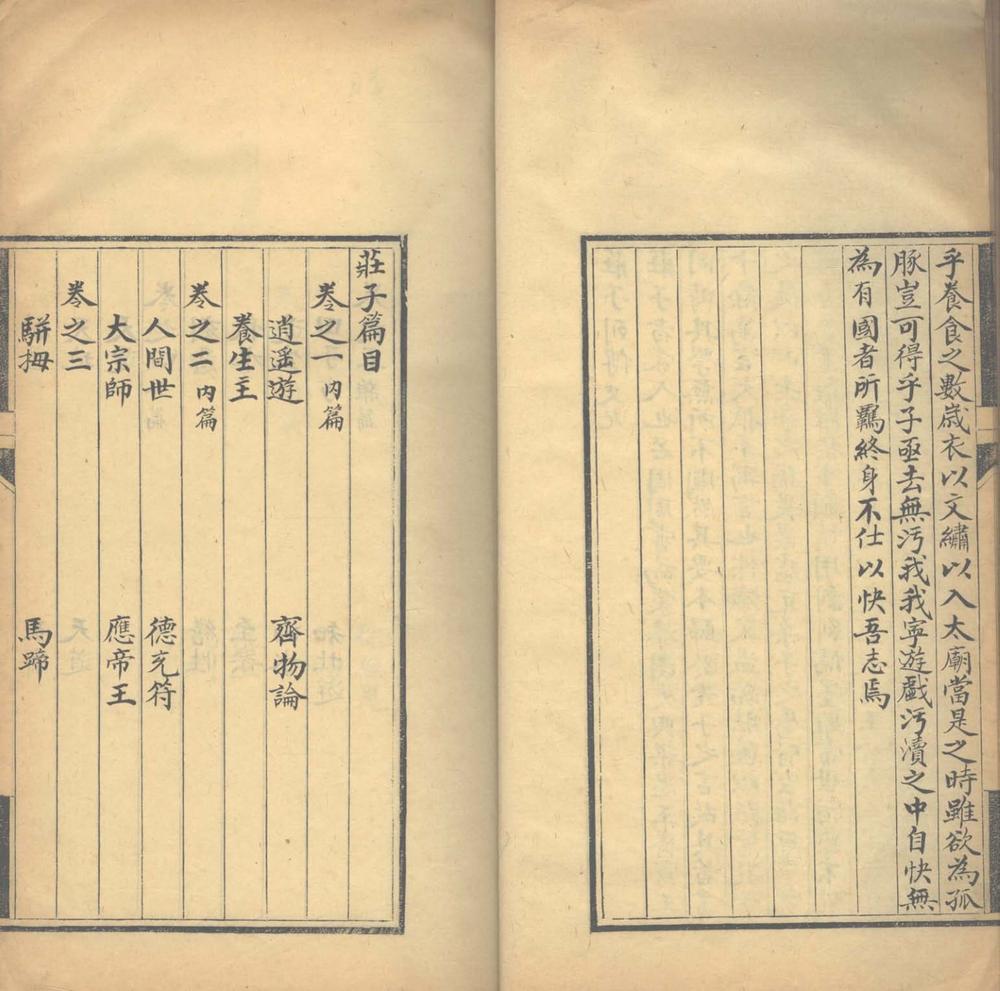 乎養食之數嵗衣以文繡以入太廟當是之時雖欲為孤
豚豈可得乎子亟去無汚我我寧遊戲汚瀆之中自快無
為有國者所羈終身不仕以快吾志焉
莊子篇目
卷之一內篇
逍遥遊 齊物論
養生主
卷之二內篇
人間世 德充符
大宗師 應帝王
卷之三
駢拇 馬蹄